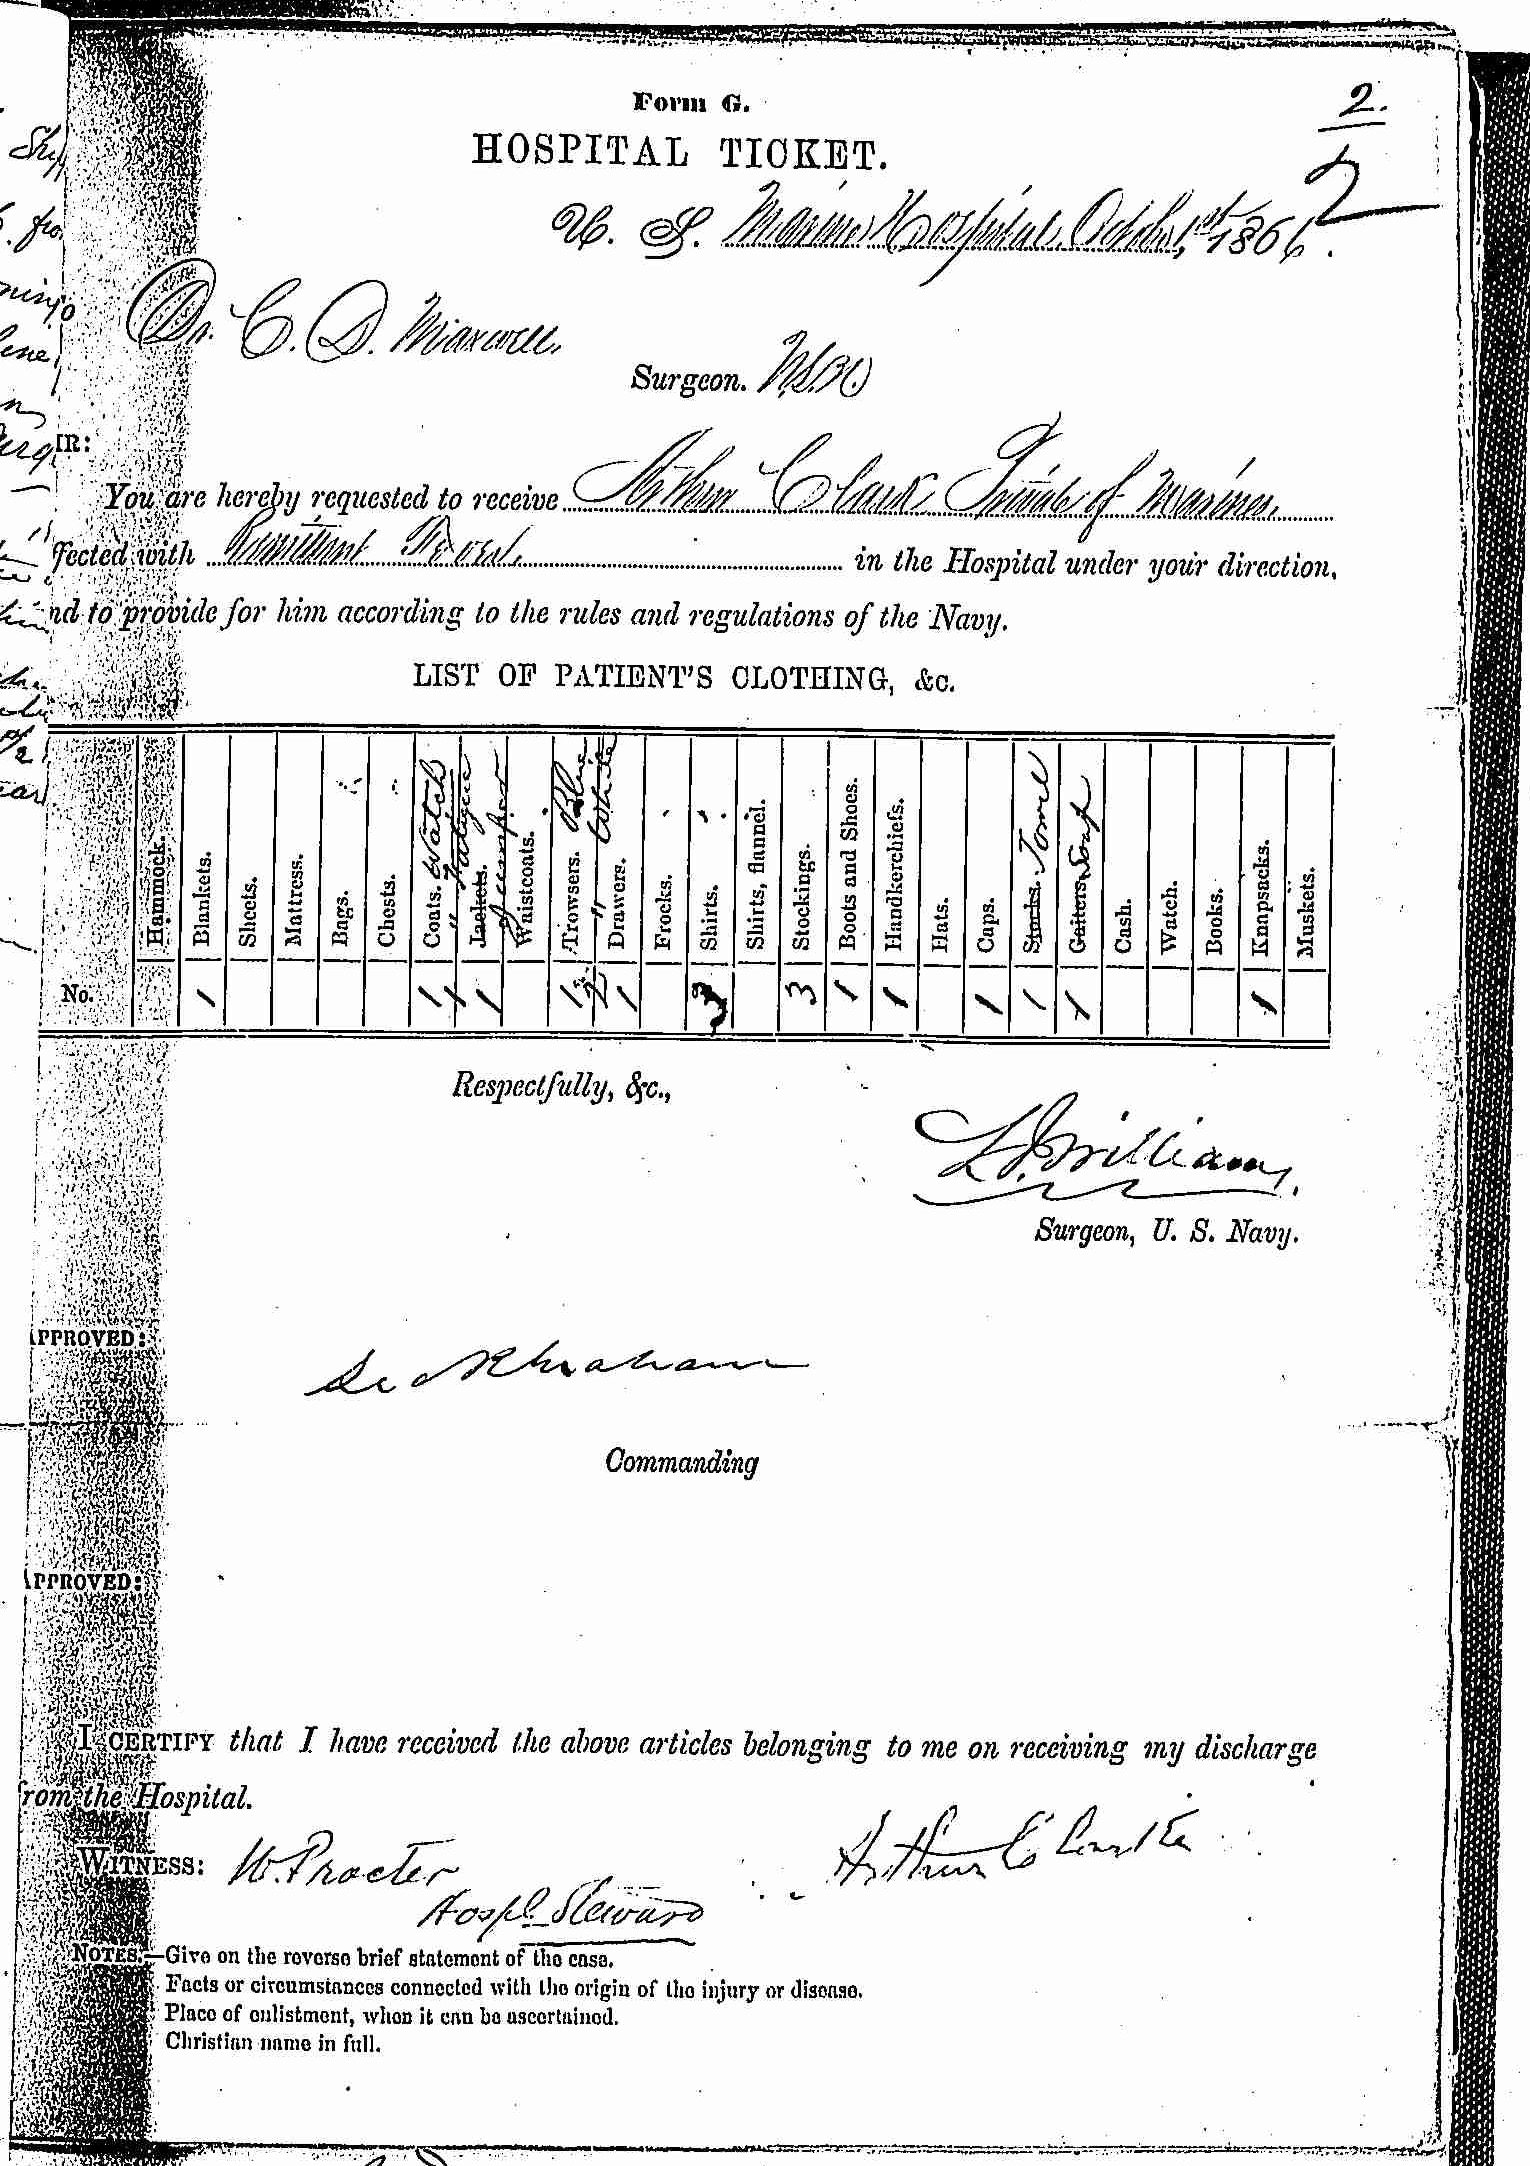 Form G.
2.
HOSPITAL TICKET.
2
U. S. Marine Hospital, October 1st 1866.
Dr. C. D. Maxwell,
Surgeon. U.S.N.
IR:
You are hereby requested to receive Arthur Clark, Private of Marines,
fected with Remittent Fever, in the Hospital under your direction,
nd to provide for him according to the rules and regulations of the Navy.
LIST OF PATIENT'S CLOTHING, &c.
Hammock.
Blankets.
Sheets.
Mattress.
Bags.
Chests.
Coats. Watch
Jackets. " Fatigue
Waistcoats.
Trowsers. Blue
" White
Drawers.
Frocks.
Shirts.
Shirts, flannel.
Stockings.
Boots and Shoes.
Handkerchiefs.
Hats.
Caps.
Stocks. Towel
Gaiters. Soap
Cash.
Watch.
Books.
Knapsacks.
Muskets.
No. 1 1 1 1 1 2 1 3 3 1 1 1 1 1 1
Respectfully, &c.,
Williams,
Surgeon, U. S. Navy.
APPROVED:
Commanding
APPROVED:
I CERTIFY that I have received the above articles belonging to me on receiving my discharge
from the Hospital.
WITNESS: W. Procter
Arthur Clarke
Hospl. Steward
NOTES.—Give on the reverse brief statement of the case.
Facts or circumstances connected with the origin of the injury or disease.
Place of enlistment, when it can be ascertained.
Christian name in full.